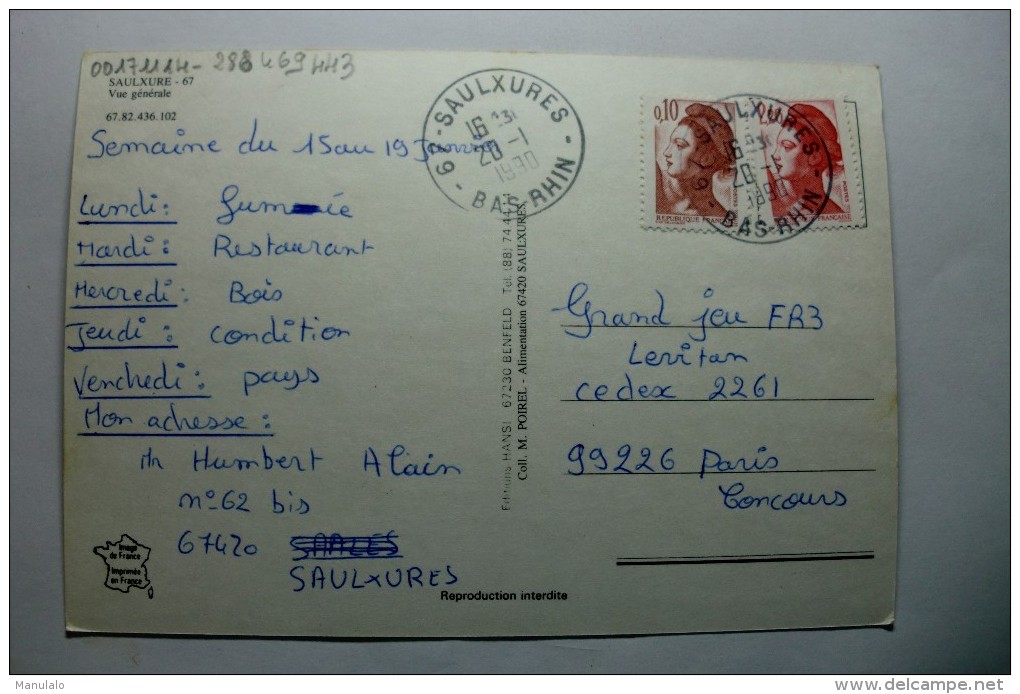 00171114-288469443
SAULXURE - 67
Vue générale
67.82.436.102
Semaine du 15 au 19 Janvier
Lundi:
Mardi: Restaurant
Mercredi: Bois
Jeudi: condition
Venchedi: pays
Mon adresse:
Mr Humbert Alain
n° 62 bis
67420 SAALES
SAULXURES
Image
de France
Imprimée
en France
Reproduction interdite
Editions HANSI 67230 BENFELD Tel. (88) 74.44.11
Coll. M. POIREL - Alimentation 67420 SAULXURES
67 - SAULXURES -
16
26 - 1
1990
BAS RHIN
0,10
REPUBLIQUE FRANÇAISE
SAULXURES
16
26 - 1
1990
BAS-RHIN
Grand jeu FR3
Levitan
cedex 2261
99226 Paris
Concours
Manulalo
www.delcampe.net